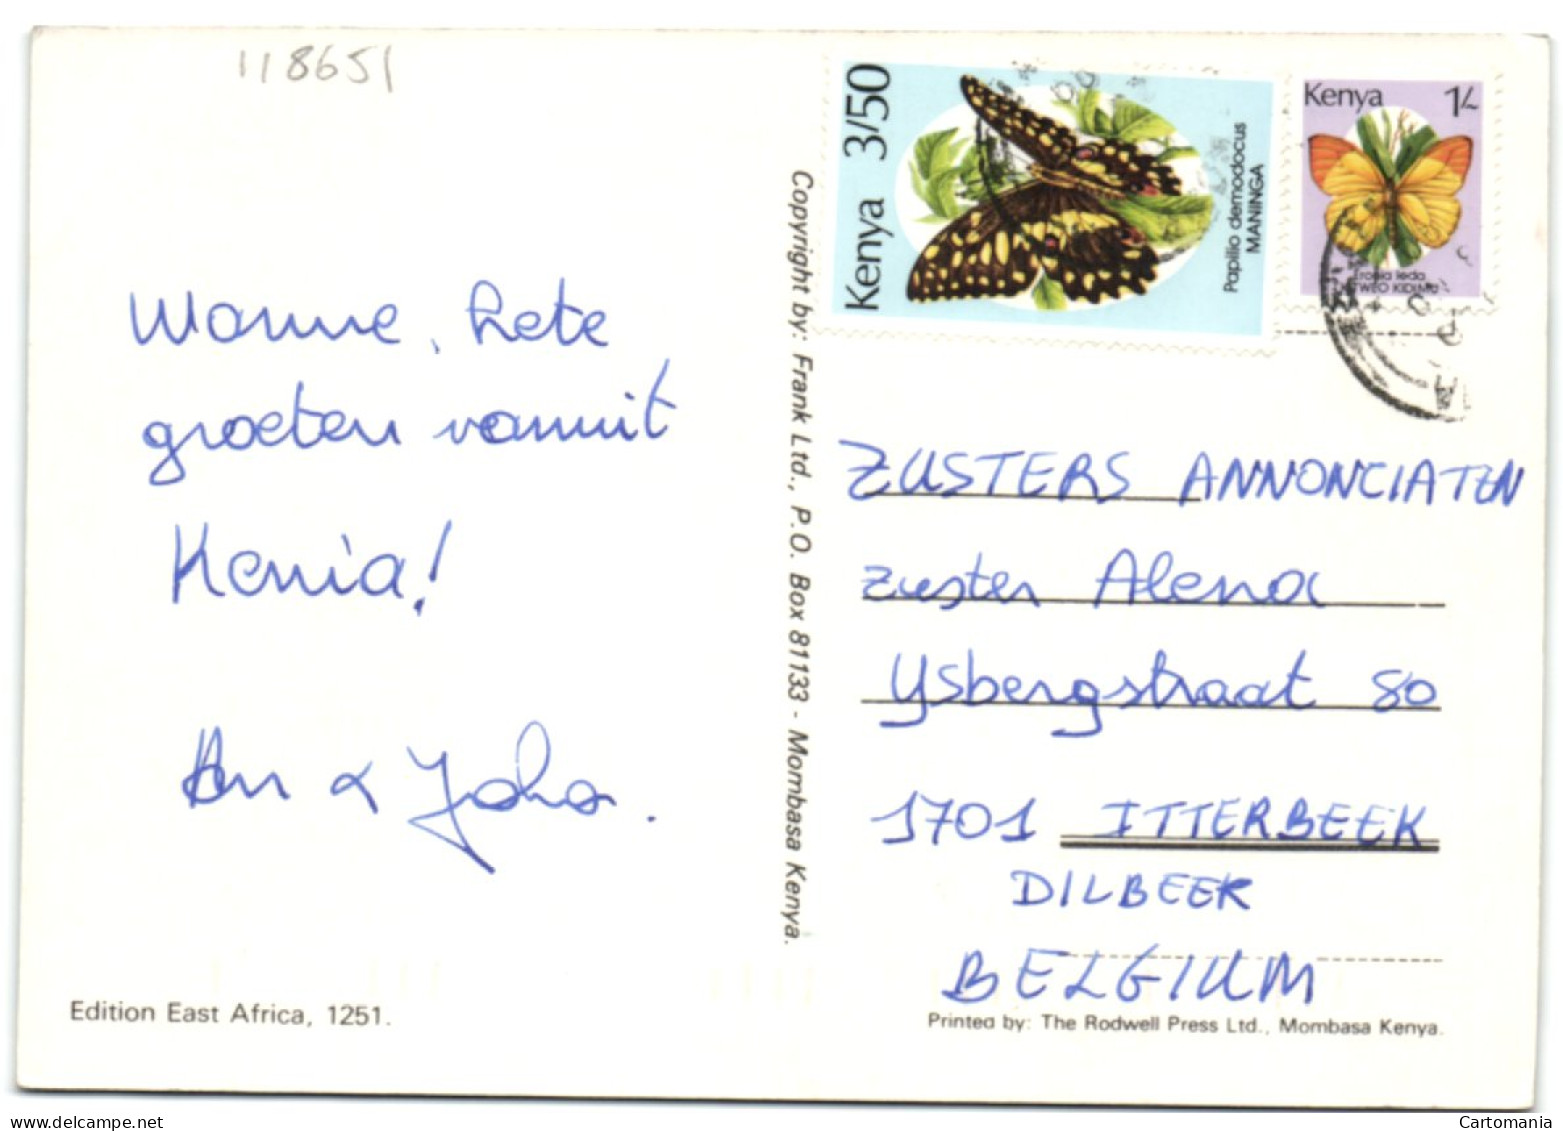 118651
Kenya 3/50
Papilio demodocus
MANINGA
Kenya 1/-
Eronia leda
TWEO KIDIMU
Copyright by: Frank Ltd., P.O. Box 81133 - Mombasa Kenya.
Warme, hete
groeten vanuit
Kenia!
An & Joho.
ZUSTERS ANNONCIATEN
zuster Alena
Ysbergstraat 80
1701 ITTERBEEK
DILBEEK
BELGIUM
Edition East Africa, 1251.
Printed by: The Rodwell Press Ltd., Mombasa Kenya.
Cartomania